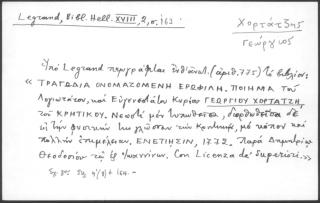 Legrand, Bibl. Hell. XVIII, 2, σ. 163.
Χορτάτζης
Γεώργιος
Ὑπὸ Legrand περιγράφεται ἐνθ' ἀνωτ. (ἀριθ. 775) τὸ βιβλίον:
« ΤΡΑΓΩΔΙΑ ΟΝΟΜΑΖΟΜΕΝΗ ΕΡΩΦΙΛΗ. ΠΟΙΗΜΑ τοῦ
Λογιωτάτου, καὶ Εὐγενεστάτου Κυρίου ΓΕΩΡΓΙΟΥ ΧΟΡΤΑΤΖΗ,
τοῦ ΚΡΗΤΙΚΟΥ. Νεωστὶ μὲν τυπωθεῖσα, διορθωθεῖσα δὲ
εἰς τὴν φυσικήν της γλῶσσαν τῶν Κρητικῶν, μὲ κόπον καὶ
πολλὴν ἐπιμέλειαν. ΕΝΕΤΙΗΣΙΝ, 1772. Παρὰ Δημητρίῳ
Θεοδοσίου τῷ ἐξ Ἰωαννίνων. Con Licenza de' Superiori. »
164.